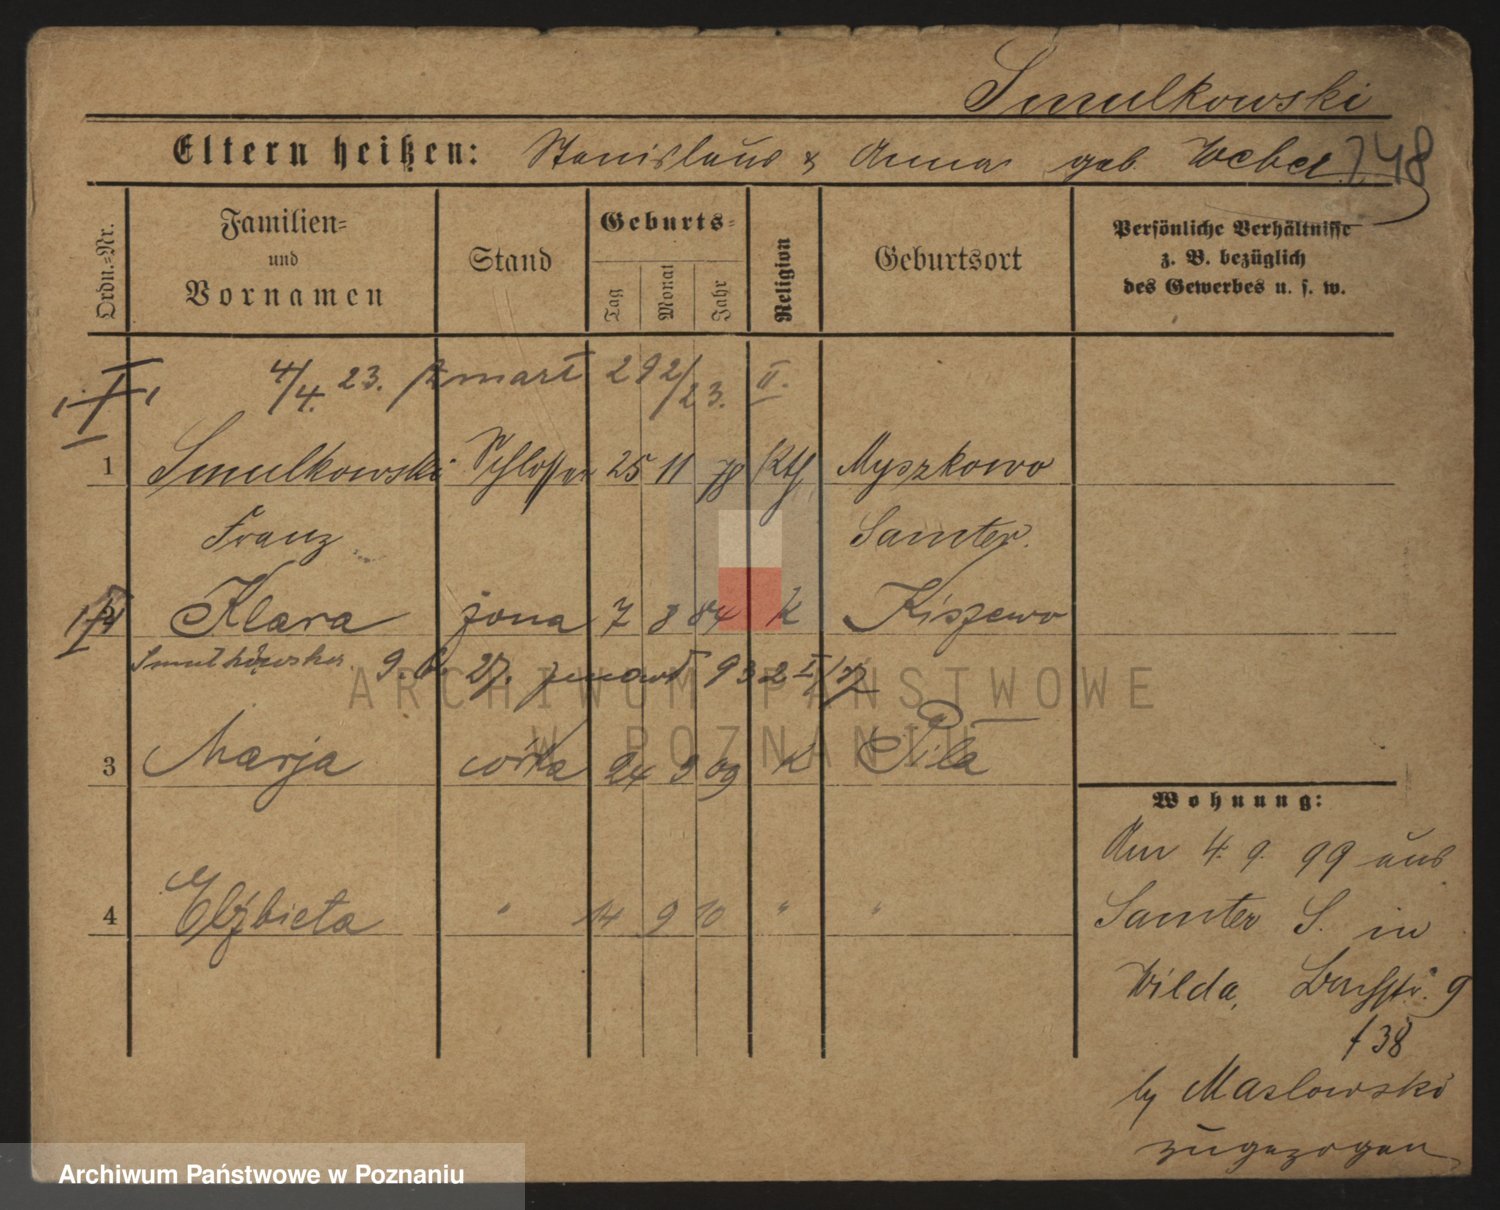 Smulkowski
Eltern heißen: Stanislaus & Anna geb. Weber 748
Ordn.-Nr.
Familien- und Vornamen
Stand
Geburts-
Tag Monat Jahr
Religion
Geburtsort
Persönliche Verhältnisse
z. B. bezüglich
des Gewerbes u. s. w.
4/4. 23. zmarł 292/23. II.
1 Smulkowski Schlosser 25 11 78 Kth Myszkowo
Franz Samter.
2 Klara żona 7 8 84 K Kiszewo
Smulkowska 27. zmarł
3 Marja córka 24 9 09 K Piła
4 Elżbieta " 14 9 10 " "
Wohnung:
Am 4. 9. 99 aus
Samter S. in
Wilda, 9
f 38
by Maslowski
zugezogen
ARCHIWUM PAŃSTWOWE
W POZNANIU
Archiwum Państwowe w Poznaniu